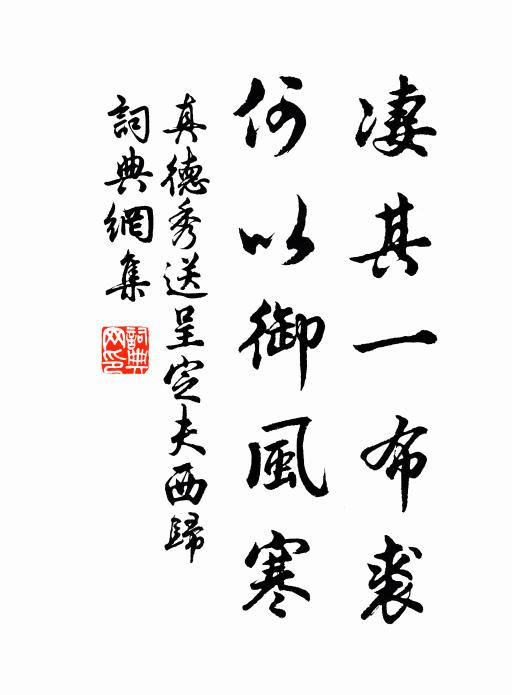 凄其一布裘
何以御風寒
真德秀送呈定夫西歸
詞典網集
詞典网印